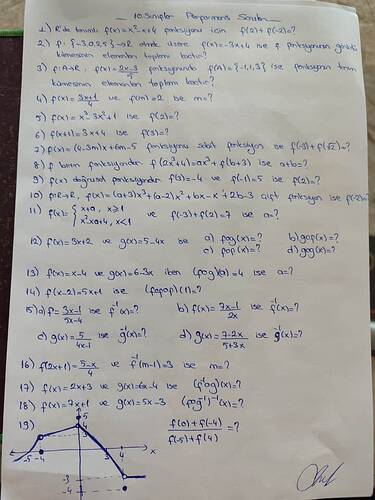 10.Sınıflar Performans Soruları
1) R'de tanımlı f(x)=x²-x+4 fonksiyonu için f(2)+f(-2)=?
2) f:{-3,0,2,5}→R olmak üzere f(x)=-3x+4 ise f fonksiyonunun görüntü
kümesinin elemanları toplamı kaçtır?
3) f:A→R, f(x)=(2x-3)/5 fonksiyonunda f(A)={-1,1,3} ise fonksiyonun tanım
kümesinin elemanları toplamı kaçtır?
4) f(x)=(3x+1)/4 ve f(m)=2 ise m=?
5) f(x)=x³-3x²+1 ise f(2)=?
6) f(x+1)=3x+4 ise f(3)=?
7) f(x)=(4-3m)x+6m-5 fonksiyonu sabit fonksiyon ise f(-3)+f(√2)=?
8) f birim fonksiyondur f(2x²+4)=ax²+f(b+3) ise a+b=?
9) f(x) doğrusal fonksiyondur f(3)=-4 ve f(-1)=5 ise f(2)=?
10) f:R→R, f(x)=(a+3)x³+(a-2)x²+bx-x+2b-3 çift fonksiyon ise f(-2)=?
11) f(x)={x+a, x≥1
x²-xa+4, x<1 ve f(-3)+f(2)=7 ise a=?
12) f(x)=3x+2 ve g(x)=5-4x ise a) fog(x)=? b) gof(x)=?
c) fof(x)=? d) gog(x)=?
13) f(x)=x-4 ve g(x)=6-3x iken (fog)(a)=4 ise a=?
14) f(x-2)=5x+1 ise (fofof)(1)=?
15) a) f=(3x-1)/(5x-4) ise f⁻¹(x)=? b) f(x)=(7x-1)/2x ise f⁻¹(x)=?
c) g(x)=5/(4x-1) ise g⁻¹(x)=? d) g(x)=(7-2x)/(5+3x) ise g⁻¹(x)=?
16) f(2x+1)=(5-x)/4 ve f⁻¹(m-1)=3 ise m=?
17) f(x)=2x+3 ve g(x)=6x-4 ise (f⁻¹og)(x)=?
18) f(x)=7x+1 ve g(x)=5x-3 (fog⁻¹)⁻¹(x)=?
19) (f(0)+f(-4))/(f(-5)+f(4))=?
5
4
3
-5 -4 3 4 x
-3
-4